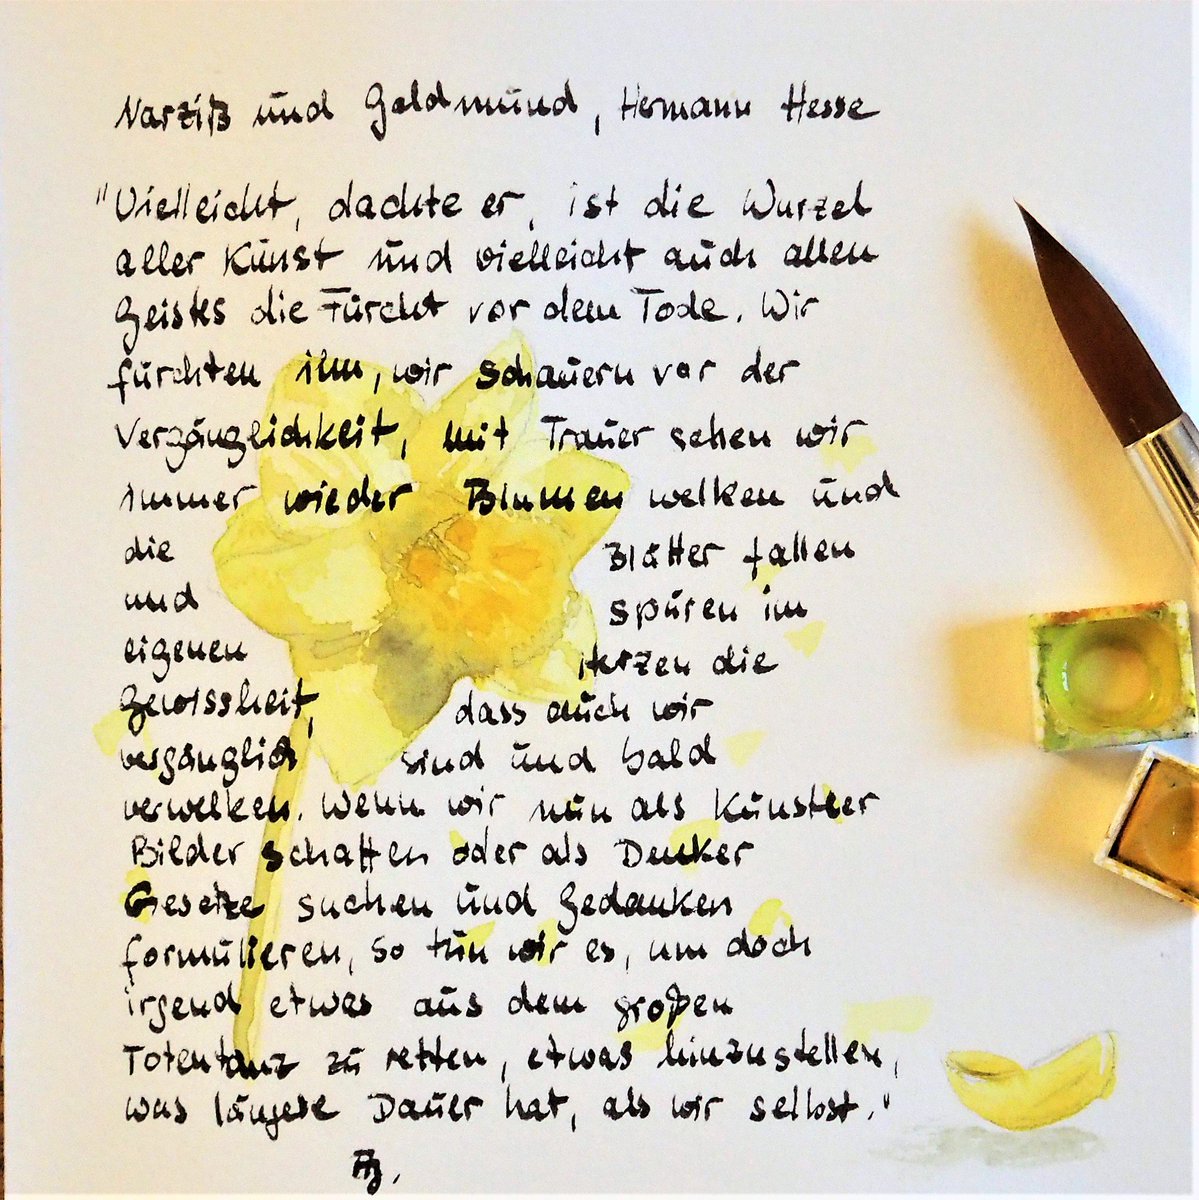 Narziß und Goldmund, Hermann Hesse
"Vielleicht, dachte er, ist die Wurzel
aller Kunst und vielleicht auch allen
Geistes die Furcht vor dem Tode. Wir
fürchten ihn, wir schauern vor der
Vergänglichkeit, mit Trauer sehen wir
immer wieder Blumen welken und
die Blätter fallen
und spüren im
eigenen Herzen die
Gewissheit, dass auch wir
vergänglich sind und bald
verwelken. Wenn wir nun als Künstler
Bilder schaffen oder als Denker
Gesetze suchen und Gedanken
formulieren, so tun wir es, um doch
irgend etwas aus dem großen
Totentanz zu retten, etwas hinzustellen,
was längere Dauer hat, als wir selbst."